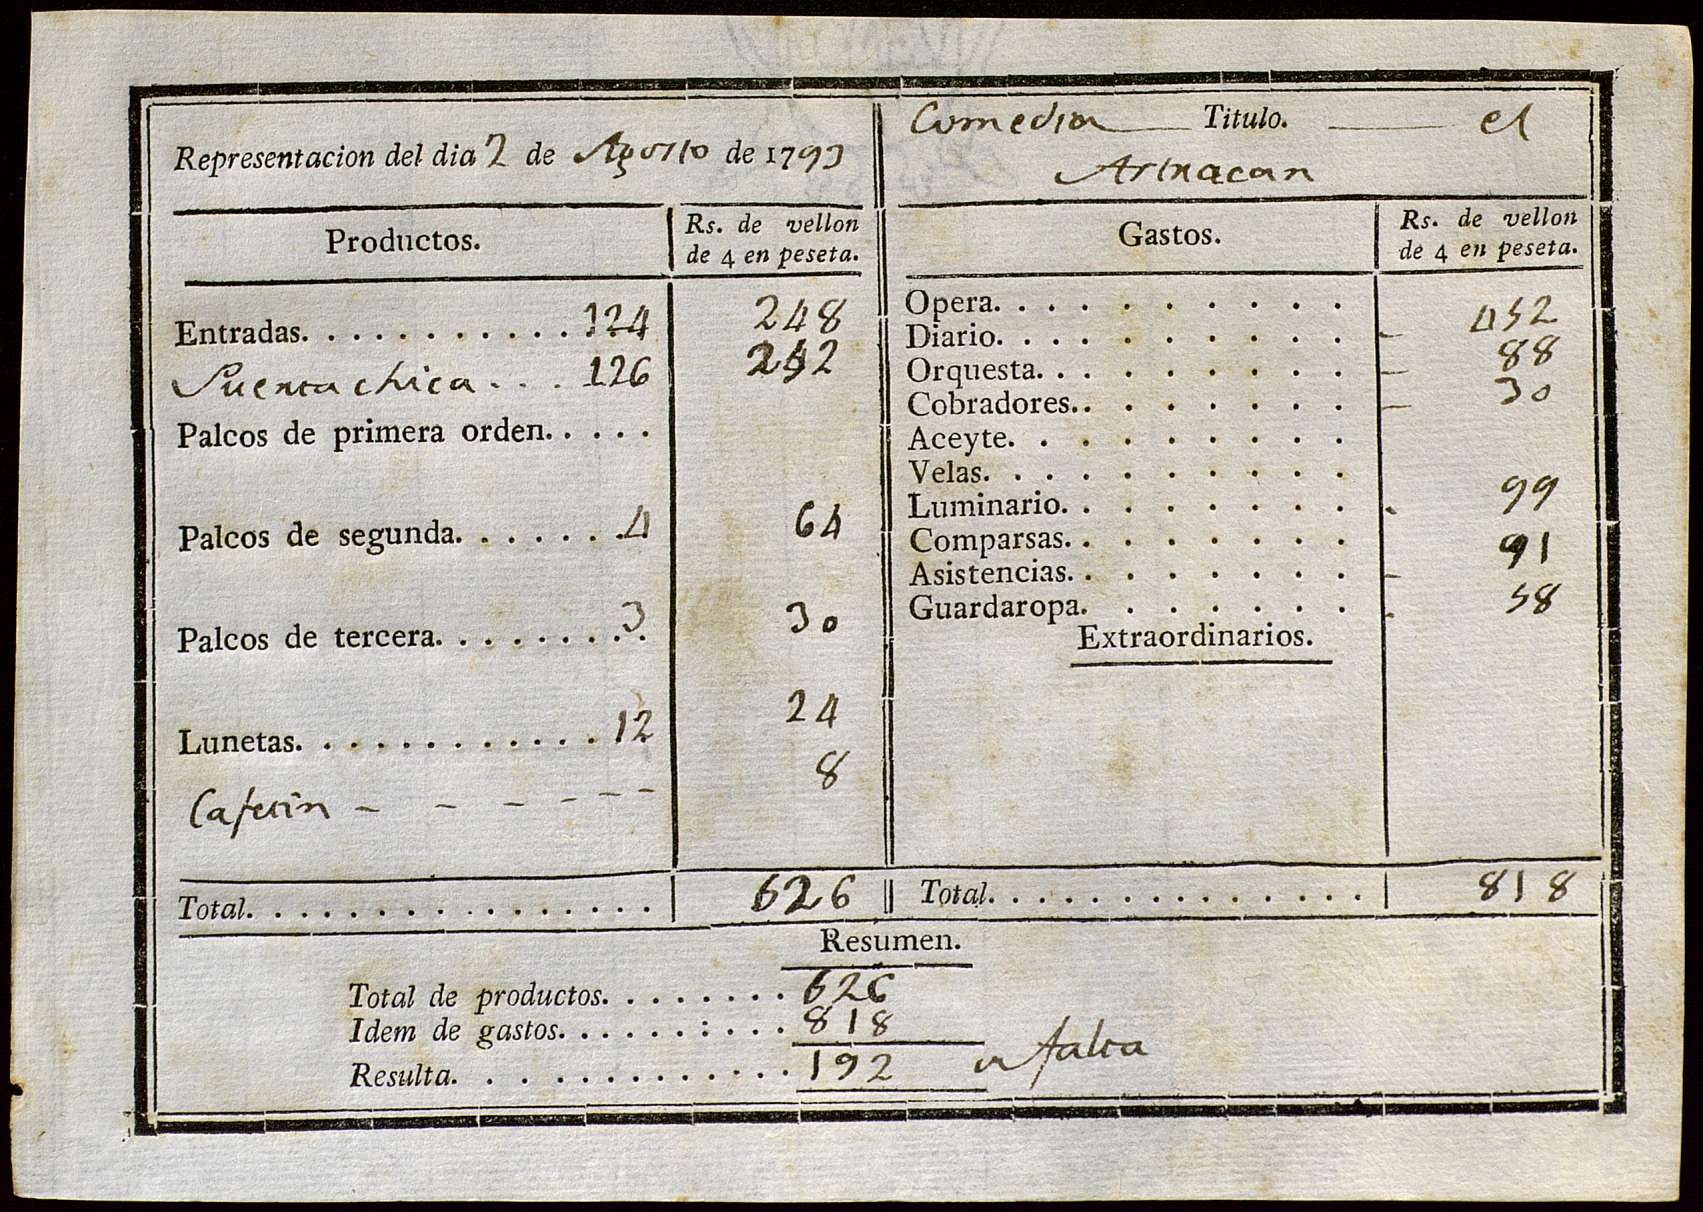 Representacion del dia 2 de Agosto de 1793
Productos. Rs. de vellon de 4 en peseta.
Entradas. . . . . . . . . . . . 124 248
Puerta chica . . . 126 252
Palcos de primera orden. . . . .
Palcos de segunda. . . . . . . 4 64
Palcos de tercera. . . . . . . . 3 30
Lunetas. . . . . . . . . . . . 12 24
Cafetin - - - - - - 8
Total. . . . . . . . . . . . . . . . 626
Comedia Titulo. el
Arinacan
Gastos. Rs. de vellon de 4 en peseta.
Opera. . . . . . . . . .
Diario. . . . . . . . . . - 452
Orquesta. . . . . . . . . - 88
Cobradores. . . . . . . . - 30
Aceyte. . . . . . . . .
Velas. . . . . . . . . .
Luminario. . . . . . . . . 99
Comparsas. . . . . . . .
Asistencias. . . . . . . . - 91
Guardaropa. . . . . . . . 58
Extraordinarios.
Total. . . . . . . . . . . . . . . 818
Resumen.
Total de productos. . . . . . . . 626
Idem de gastos. . . . . . : . . . 818
Resulta. . . . . . . . . . . . . 192 falta